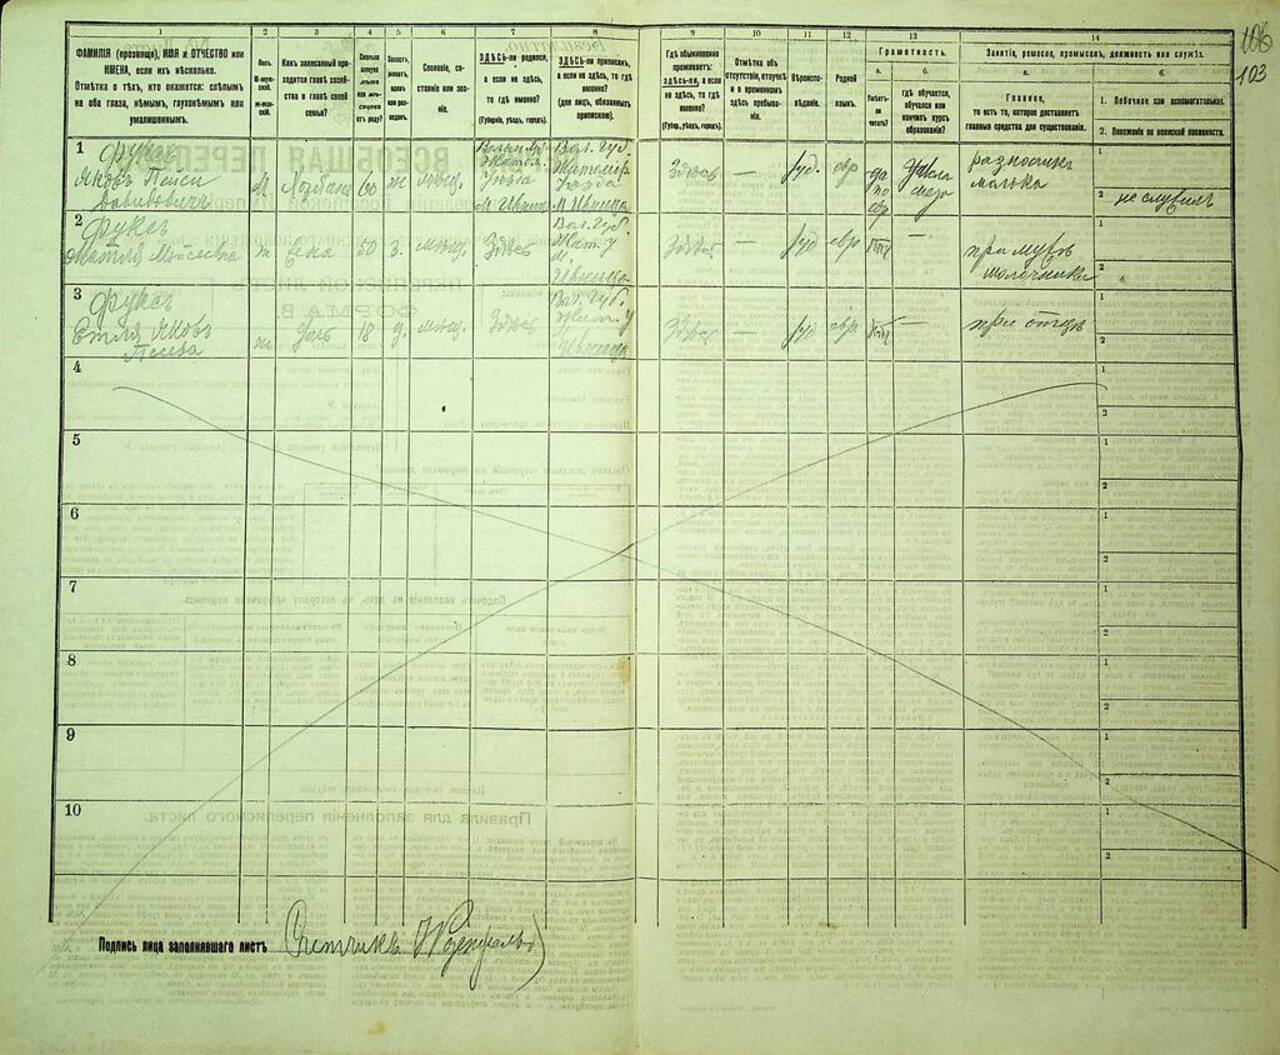 106
103
1
2
3
4
5
6
7
8
9
10
11
12
13
14
ФАМИЛІЯ (прозвище), ИМЯ и ОТЧЕСТВО или
ИМЕНА, если ихъ нѣсколько.
Отмѣтка о тѣхъ, кто окажется: слѣпымъ
на оба глаза, нѣмымъ, глухонѣмымъ или
умалишоннымъ.
Полъ.
М-муж-
ской.
ж-жен-
скій.
Какъ записанный при-
ходится главѣ хозяй-
ства и главѣ своей
семьи?
Сколько
минуло
лѣтъ
или мѣ-
сяцевъ
отъ роду?
Холостъ,
женатъ,
вдовъ
или раз-
веденъ.
Сословіе, со-
стояніе или зва-
ніе.
ЗДѢСЬ-ли родился,
а если не здѣсь,
то гдѣ именно?
(Губернія, уѣздъ, городъ).
ЗДѢСЬ-ли приписанъ,
а если не здѣсь, то гдѣ
именно?
(для лицъ, обязанныхъ
припискою).
Гдѣ обыкновенно
проживаетъ:
здѣсь-ли, а если
не здѣсь, то гдѣ
именно?
(Губер., уѣздъ, городъ).
Отмѣтка объ
отсутствіи, отлучкѣ
и о временномъ
здѣсь пребыва-
ніи.
Вѣроиспо-
вѣданіе.
Родной
языкъ.
Грамотность.
а.
Умѣетъ-
ли
читать?
б.
гдѣ обучается,
обучался или
кончилъ курсъ
образованія?
Занятіе, ремесло, промыселъ, должность или служба.
а.
Главное,
то есть то, которое доставляетъ
главныя средства для существованія.
б.
1. Побочное или вспомогательное.
2. Положеніе по воинской повинности.
1
Фуксъ
Яковъ Пейси
Давидовичъ
М
Хозяинъ
60
ж
мѣщ.
М. Ивница
Вол. Губ.
Житомір
Уѣзда
М. Ивница
Здѣсь
—
Іуд.
евр
да
по
евр
разносчикъ
молока
1
2 не служилъ
2
Фуксъ
Матля Мойсеевна
ж
жена
50
з.
мѣщ.
Здѣсь
Вол. Губ.
Жит. У
м.
Ивница
Здѣсь
—
Іуд
евр.
нѣтъ
—
при мужѣ
молочника
1
2
3
Фуксъ
Етля Яковъ
Пейсва
ж
дочь
18
д.
мѣщ.
Здѣсь
Вол. Губ.
Жит. У
Ивница
Здѣсь
—
Іуд
евр.
нѣтъ
—
при отцѣ
1
2
4
1
2
5
1
2
6
1
2
7
1
2
8
1
2
9
1
2
10
1
2
Подпись лица заполнявшаго листъ Счетчикъ